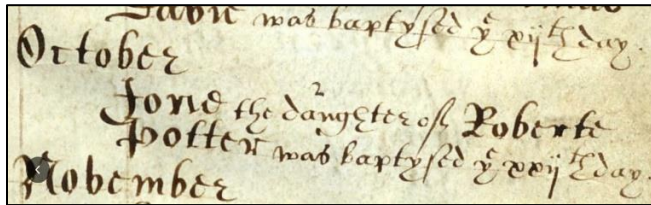 was baptysed yᵉ xijth day.
October
Jone the daughter of Roberte
Potter was baptysed yᵉ xxijth day.
November